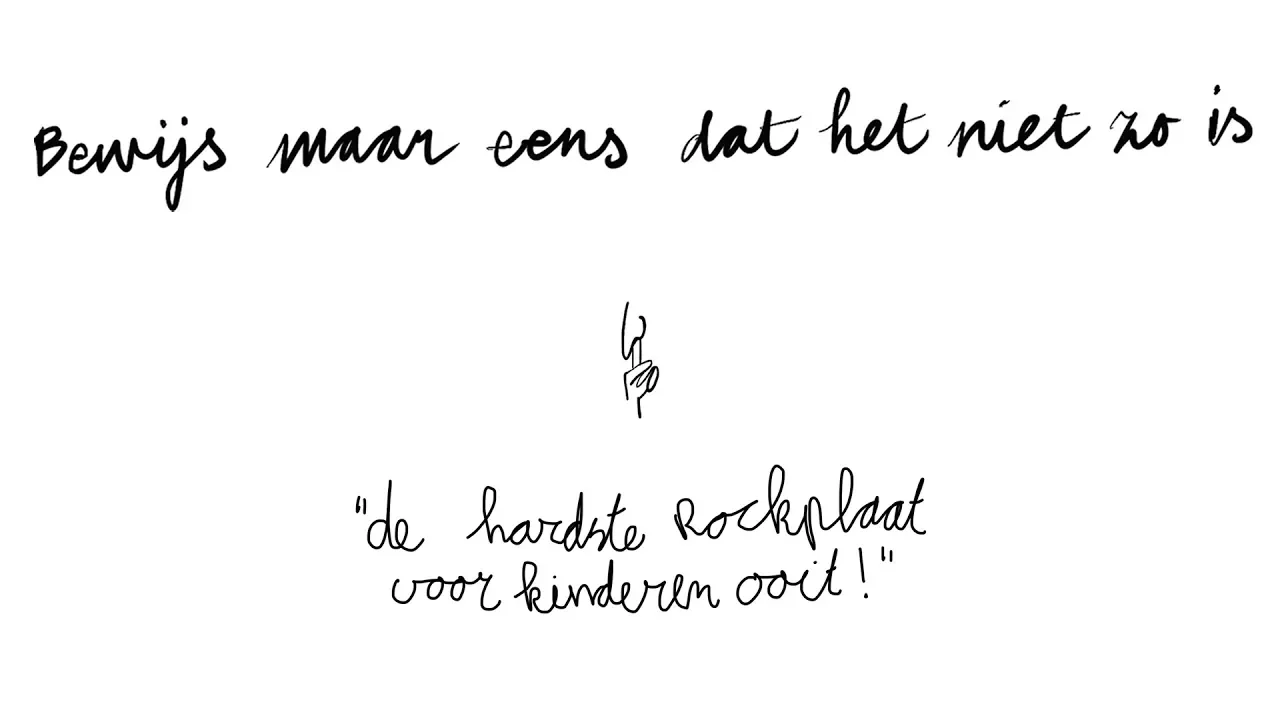 Bewijs maar eens dat het niet zo is
"de hardste Rockplaat
voor kinderen ooit!"